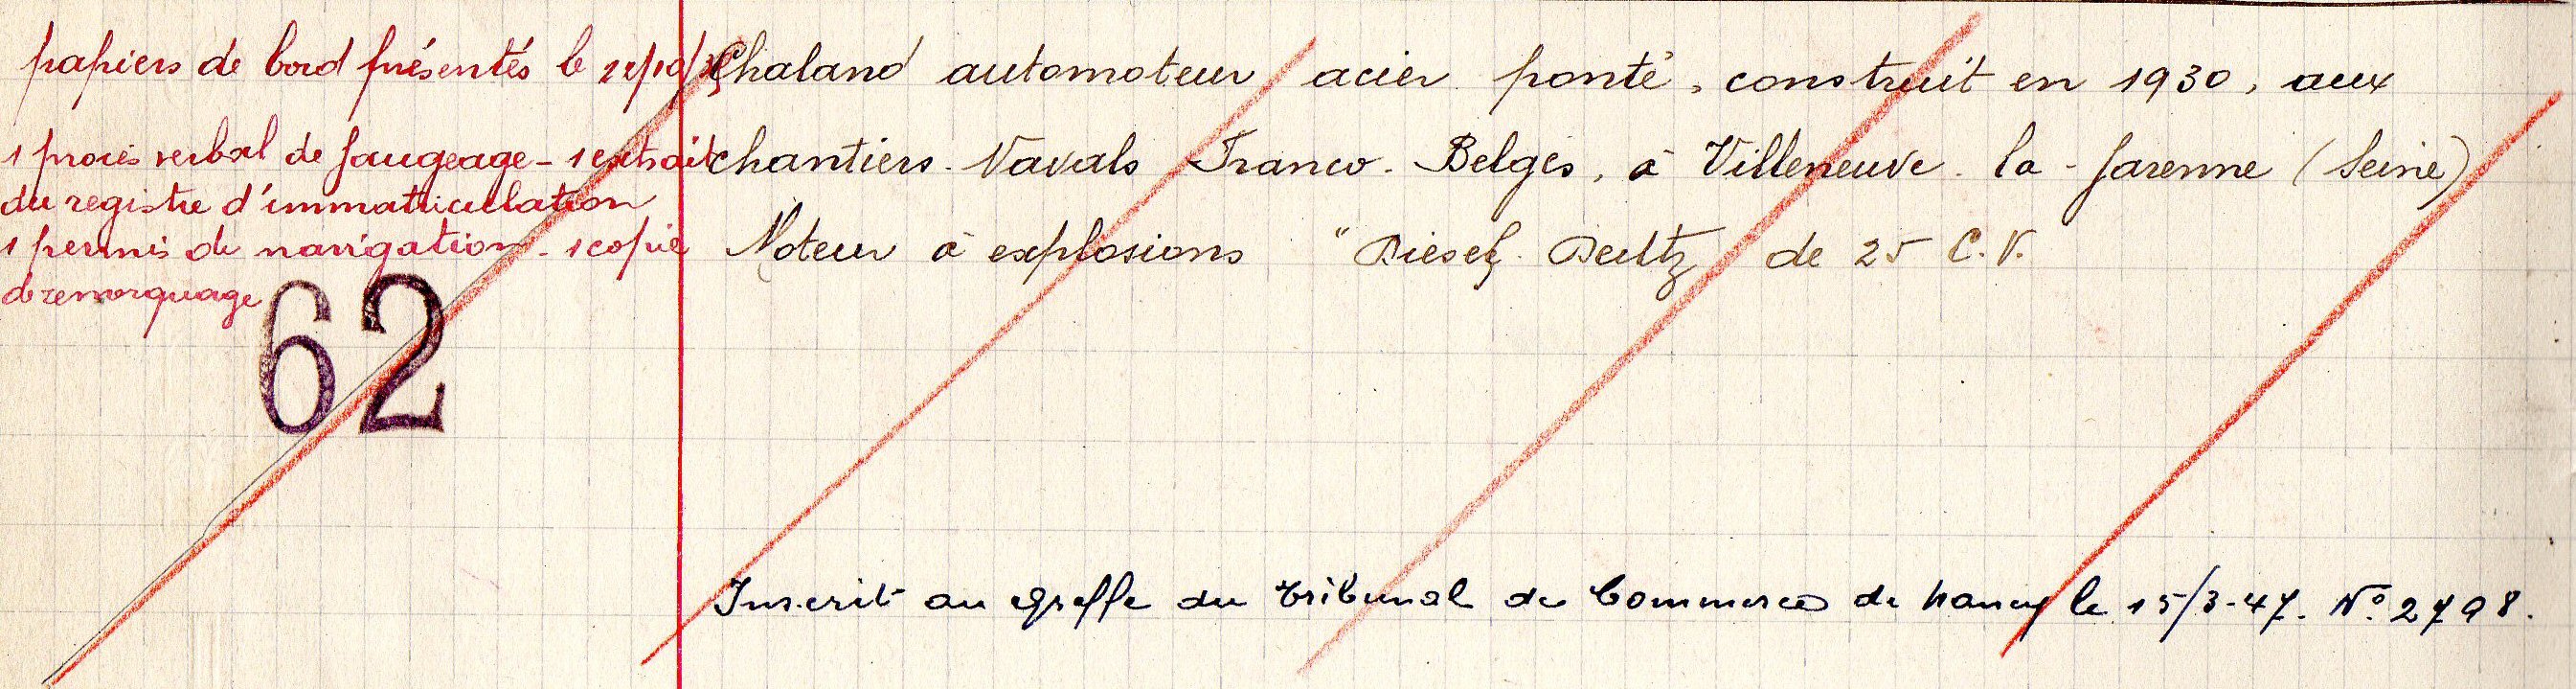 papiers de bord présentés le
1 procès verbal de jaugeage - 1 extrait
du registre d'immatriculation
1 permis de navigation - 1 copie
de remorquage
62
Chaland automoteur acier ponté, construit en 1930, aux
chantiers - Navals Franco - Belges, à Villeneuve - la - Garenne (Seine)
Moteur à explosions "Diesel - Deutz de 25 C.V.
Inscrit au greffe du tribunal de Commerce de Nancy le 15/3-47. N° 2798.